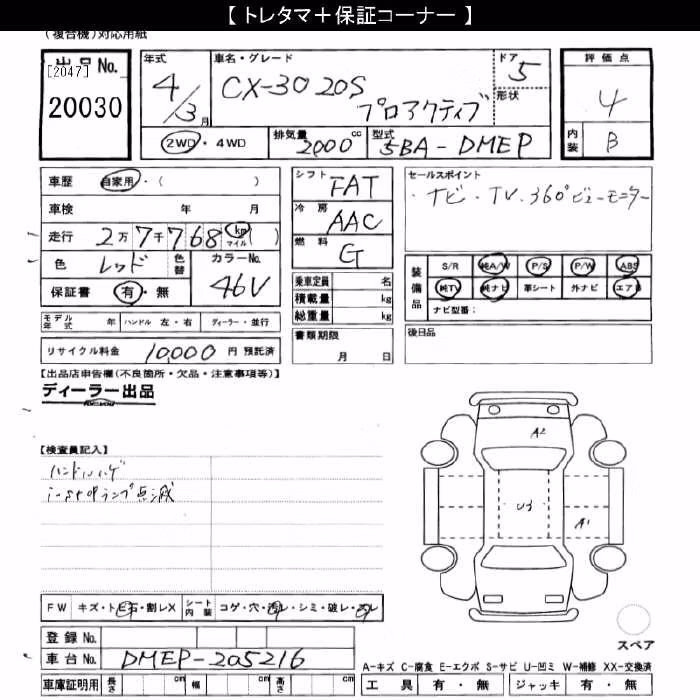 【 トレタマ＋保証コーナー 】
(複合機)対応用紙
出品No.
[2047]
20030
年式
4/3月
車名・グレード
CX-30 20S
プロアクティブ
ドア
5
形状
評価点
4
内装
B
2WD・4WD
排気量
2000
cc
型式
5BA-DMEP
車歴 自家用・( )
車検 年 月
走行 2万7千768 km マイル ( )
色 レッド 色替
カラーNo.
46V
保証書 有・無
シフト
FAT
冷房
AAC
燃料
G
乗車定員 名
積載量 kg
総重量 kg
書類期限
月 日
セールスポイント
・ナビ・TV・360°ビューモニター
装備品
S/R 純A/W P/S P/W ABS
純TV 純ナビ 革シート 外ナビ エアB
ナビ型番：
後日品
モデル年式 年 ハンドル 左・右 ディーラー・並行
リサイクル料金 10,000 円 預託済
【出品店申告欄(不良箇所・欠品・注意事項等)】
ディーラー出品
【検査員記入】
ハンドルハゲ
i-stopランプ点滅
A2
U3
A1
FW キズ・トビ石・割レX シート内装 コゲ・穴・汚レ・シミ・破レ・スレ
登録No.
車台No. DMEP-205216
車庫証明用 長さ cm 幅 cm 高さ cm
スペア
A-キズ C-腐食 E-エクボ S-サビ U-凹ミ W-補修 XX-交換済
工具 有・無 ジャッキ 有・無